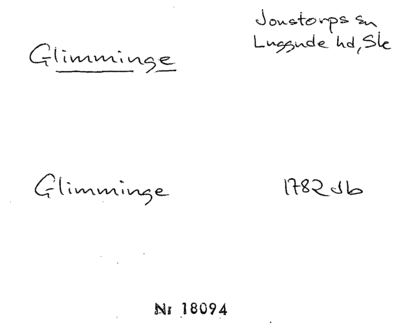 Glimminge
Jonstorps sn
Luggude hd, Sk
Glimminge
1782 Jb
Nr 18094